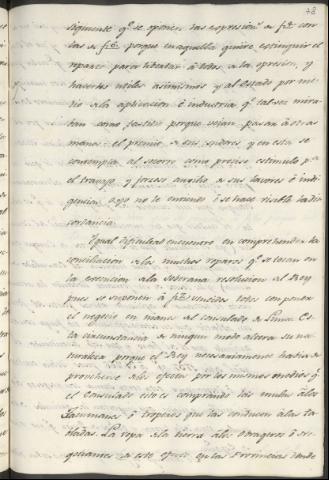 48
siguiente qe. se oponen las expresions. de fs. con
las de fs. porque en aquella quiere extinguir el
reparto para libertar à todos a la opresion, y
hacerles utiles asimismos y al Estado por me
dio de la aplicacion è industria qe. tal vez mira
ban como fastidio porque veian pasar à otras
manos el premio de sus sudores y en esta se
contempla al socorro como preciso estimulo pa.
el trabajo, y forzoso auxilio a sus labores è indi
gencias, yo no lo entiendo ò se hace visible la dis
cordancia.
Igual dificultad encuentro en comprehender la
conciliacion de los muchos reparos qe. se tocan en
la execucion de la Soberana resolucion del Rey
pues se exponen à fs. vencidos todos con poner
el negocio en manos del consulado de Lima. Es
ta circunstancia de ningun modo altera su na
turaleza porque el Rey necesariamente habia de
providenciar los efectos por los mismos medios qe.
el Consulado esto es comprando las mulas à los
Tucumanes ò tropeios que las conducen à las ta
bladas. La ropa de la tierra à los obrageros ò tra
ficantes de este efecto en las Provincias donde